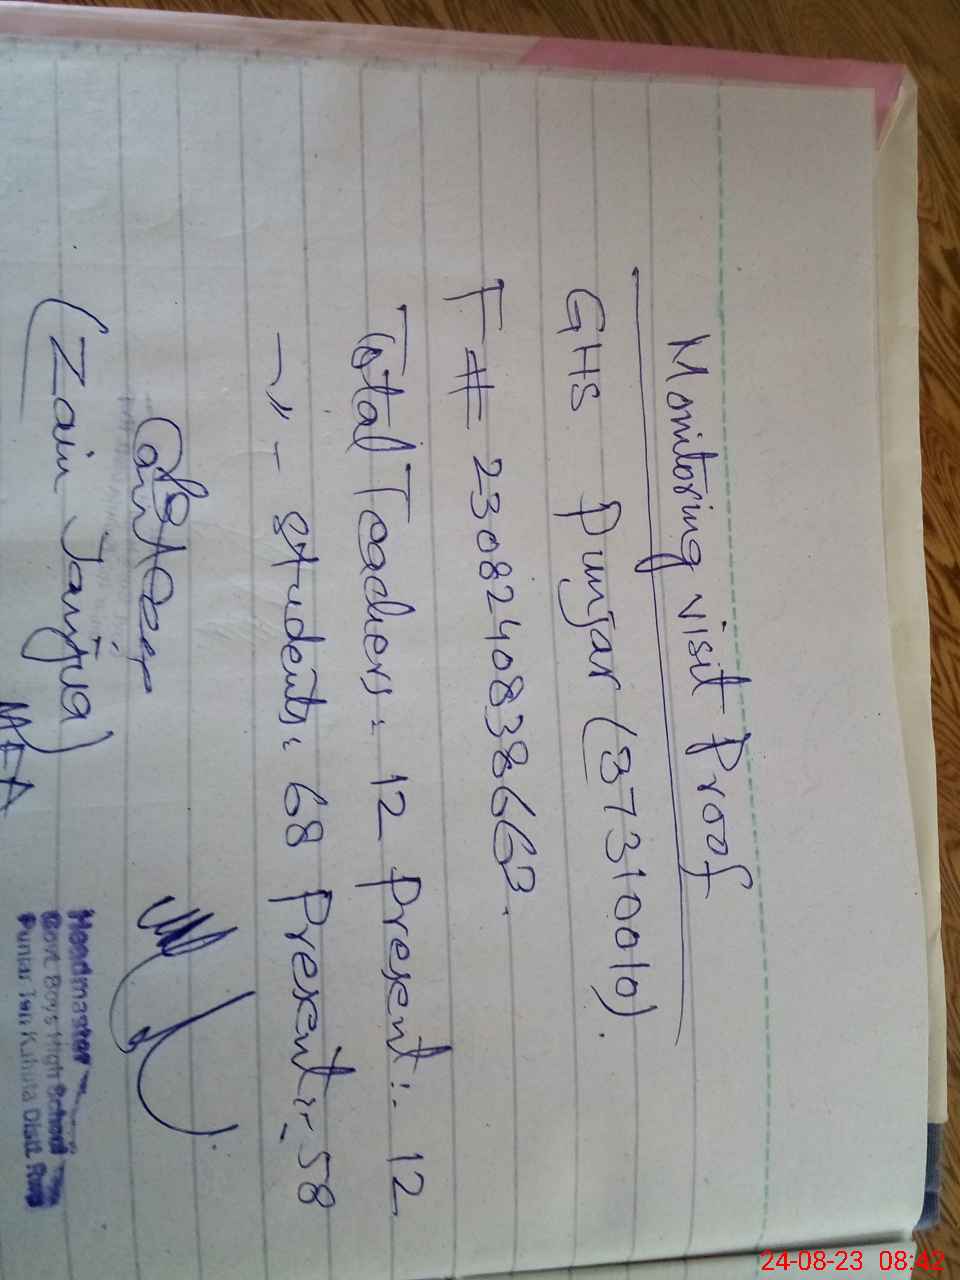 Monitoring visit Proof
GHS Punjar (37310010).
F# 2308240838663.
Total Teachers: 12 Present:. 12
–〃– students: 68 Present:- 58
(Zain Janjua)
MEA
Headmaster
Govt Boys High School
Punjar Teh Kahuta Distt
24-08-23 08:42